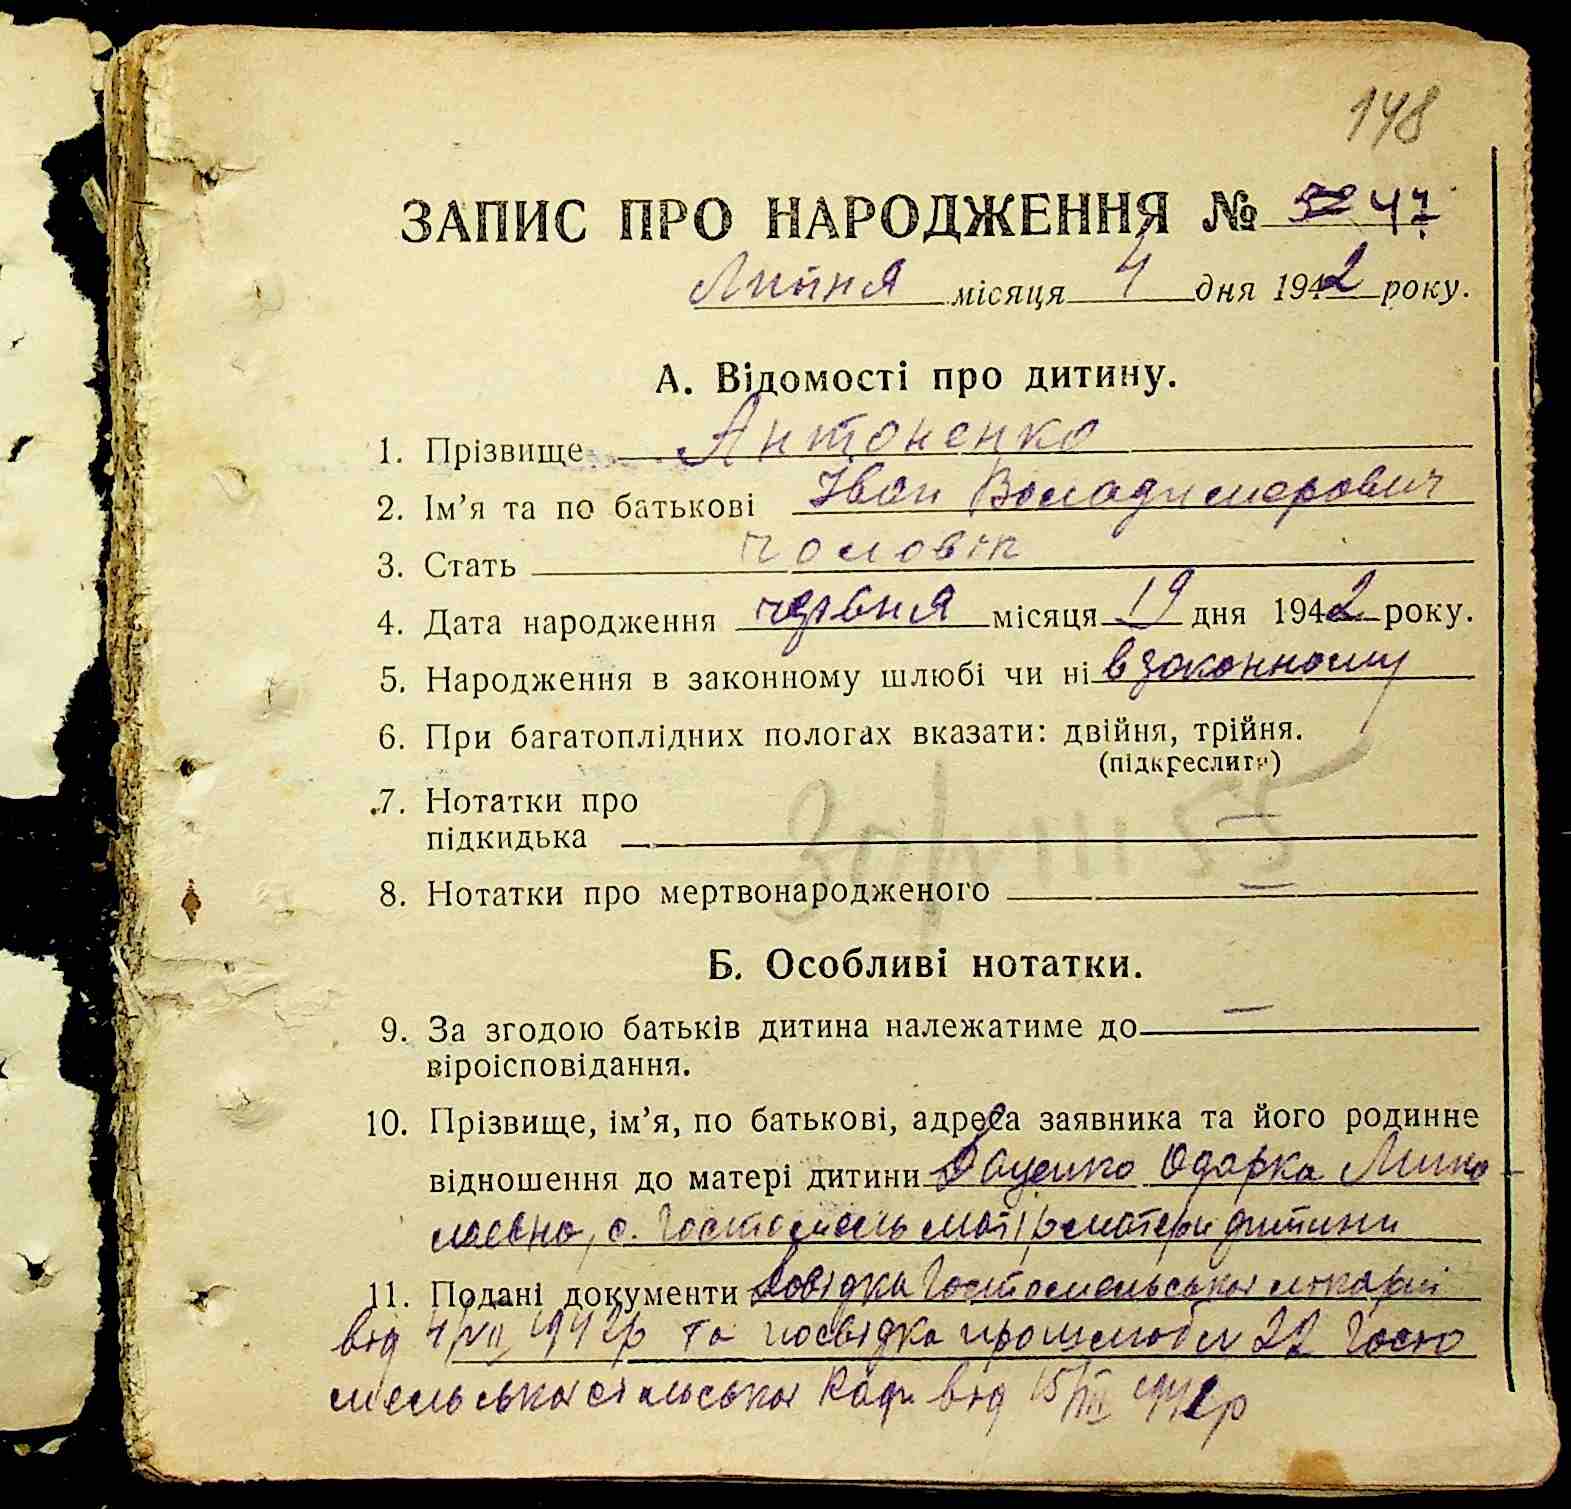 148
ЗАПИС ПРО НАРОДЖЕННЯ № 47
Липня місяця 4 дня 1942 року.
А. Відомості про дитину.
1. Прізвище Антоненко
2. Ім’я та по батькові Іван Володимерович
3. Стать чоловік
4. Дата народження червня місяця 19 дня 1942 року.
5. Народження в законному шлюбі чи ні в законному
6. При багатоплідних пологах вказати: двійня, трійня.
(підкреслити)
7. Нотатки про
підкидька
30/VIII 55
8. Нотатки про мертвонародженого
Б. Особливі нотатки.
9. За згодою батьків дитина належатиме до —
віроісповідання.
10. Прізвище, ім’я, по батькові, адреса заявника та його родинне
відношення до матері дитини Доценко Одарка Мико-
лаєвна, с. Гостомель матір матери дитини
11. Подані документи Довідка Гостомельської лікарні
від 4/VII 1942р та посвідка про шлюб № 22 Госто
мельської сільської Ради від 15/III 1942р